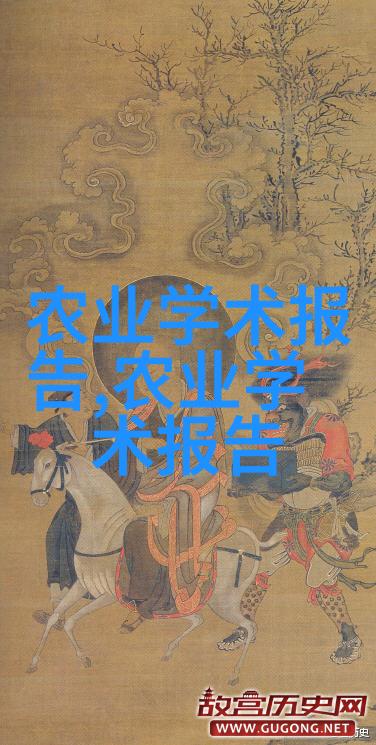 农业学术报
告,农业学
术报告
故宫历史网
WWW.GUGONG.NET
历史